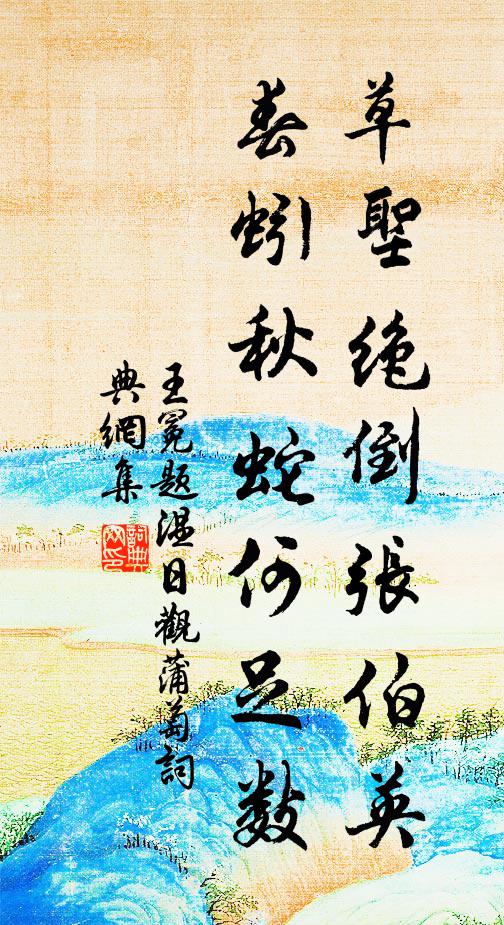 草聖絶倒張伯英
春蚓秋蛇何足數
王冕題温日觀蒲萄詞
典網集
詞典